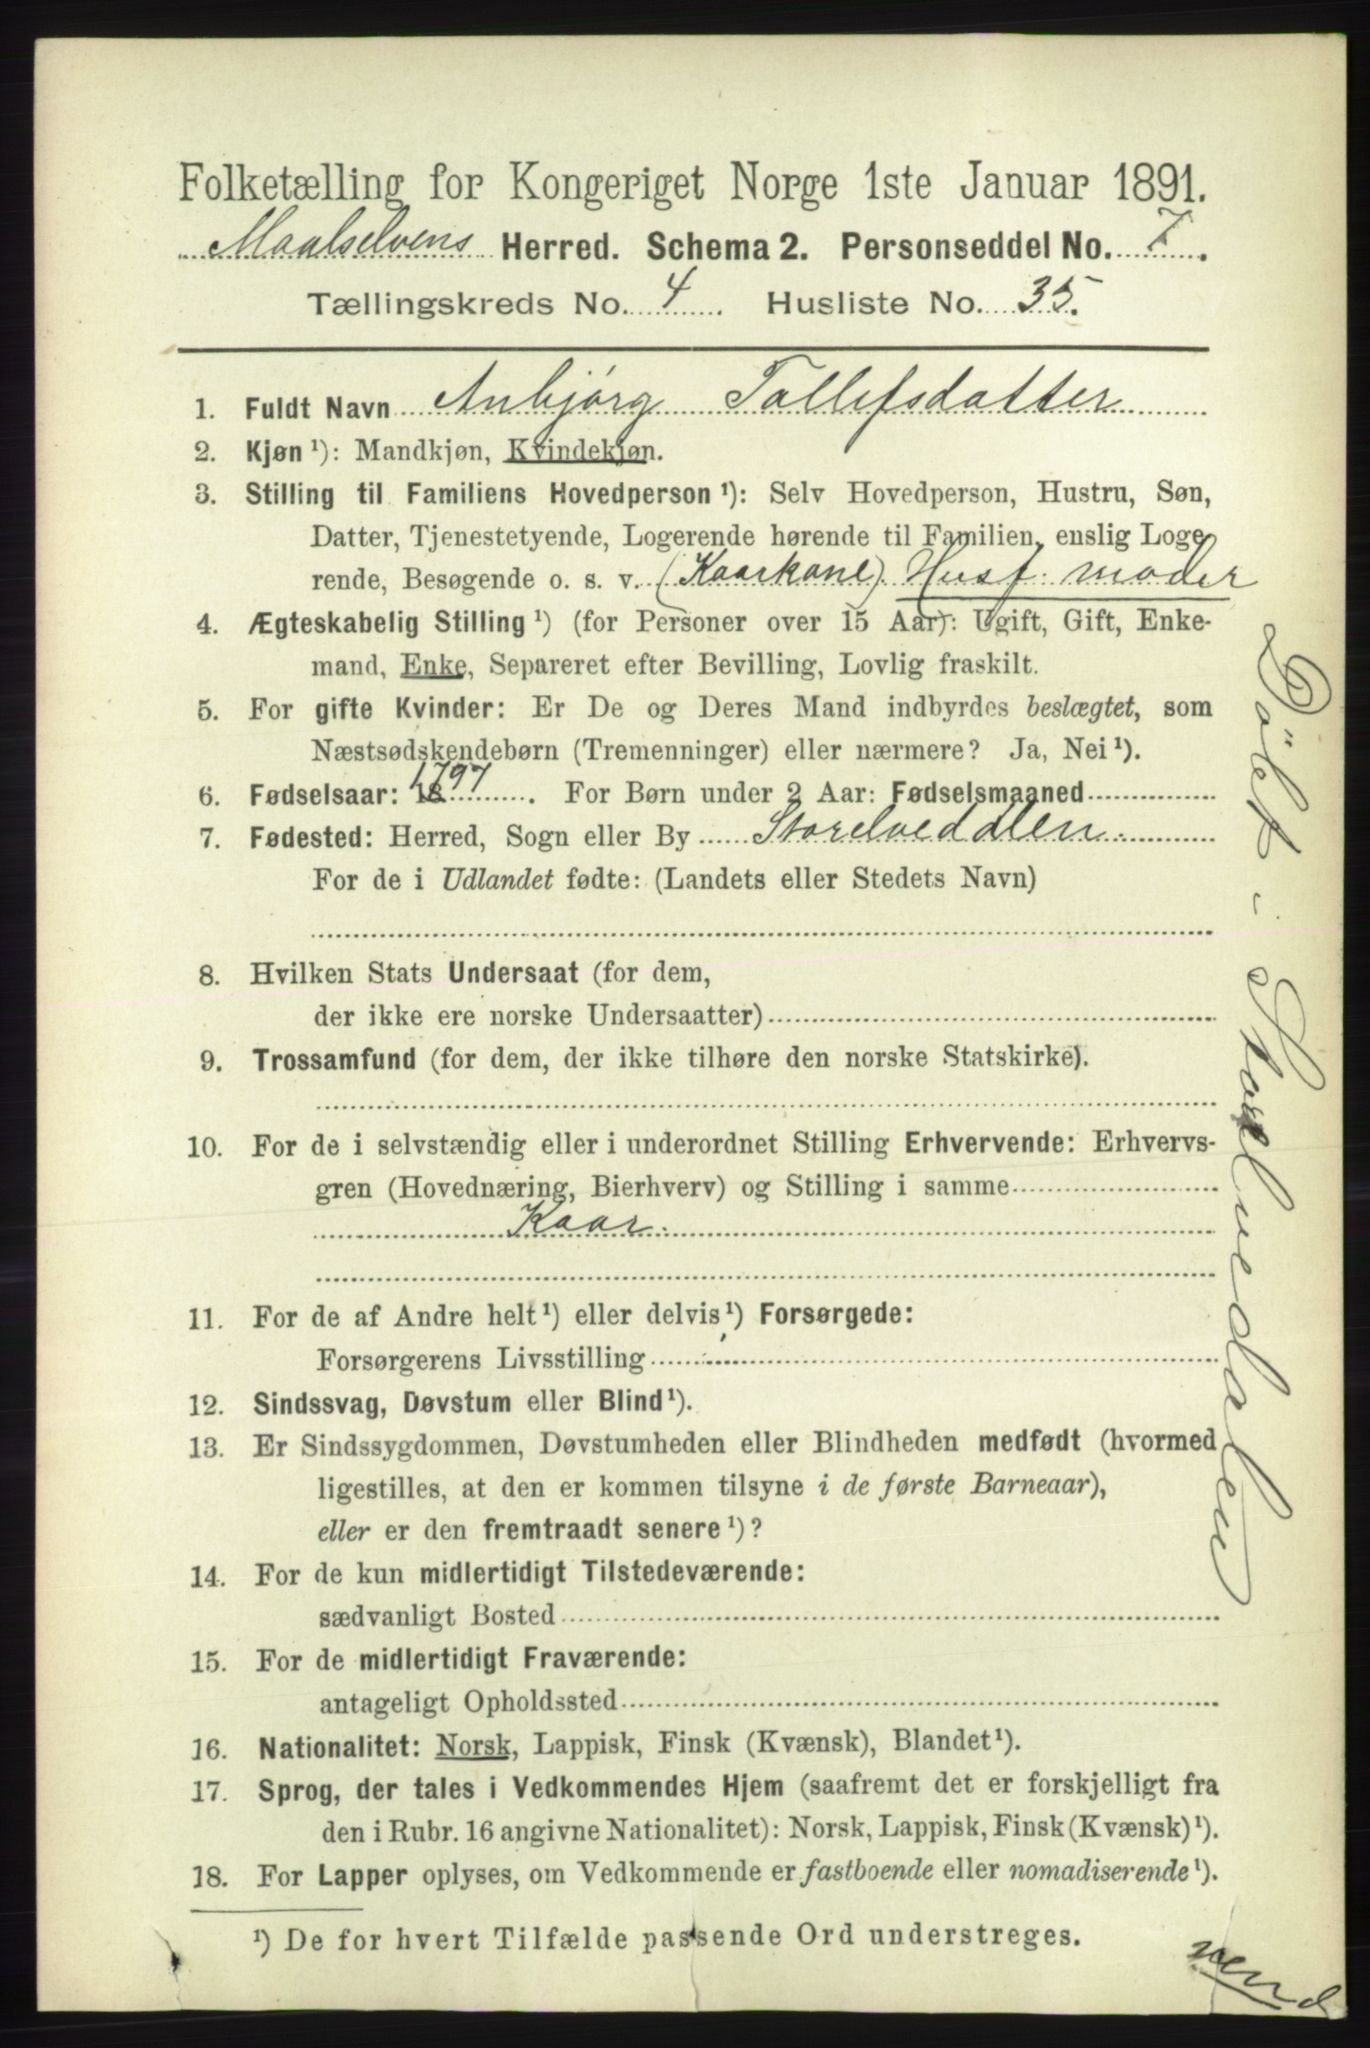 Folketælling for Kongeriget Norge 1ste Januar 1891.
Maalselvens Herred. Schema 2. Personseddel No. 7.
Tællingskreds No. 4 Husliste No. 35.
1. Fuldt Navn Anbjørg Tollefsdatter
2. Kjøn ¹): Mandkjøn, Kvindekjøn.
3. Stilling til Familiens Hovedperson ¹): Selv Hovedperson, Hustru, Søn,
Datter, Tjenestetyende, Logerende hørende til Familien, enslig Loge-
rende, Besøgende o. s. v. (Kaarkone) Husf. moder
4. Ægteskabelig Stilling ¹) (for Personer over 15 Aar): Ugift, Gift, Enke-
mand, Enke, Separeret efter Bevilling, Lovlig fraskilt.
5. For gifte Kvinder: Er De og Deres Mand indbyrdes beslægtet, som
Næstsødskendebørn (Tremenninger) eller nærmere? Ja, Nei ¹).
6. Fødselsaar: 18 1797. For Børn under 2 Aar: Fødselsmaaned
7. Fødested: Herred, Sogn eller By Storelveddlen.
For de i Udlandet fødte: (Landets eller Stedets Navn)
8. Hvilken Stats Undersaat (for dem,
der ikke ere norske Undersaatter)
9. Trossamfund (for dem, der ikke tilhøre den norske Statskirke).
10. For de i selvstændig eller i underordnet Stilling Erhvervende: Erhvervs-
gren (Hovednæring, Bierhverv) og Stilling i samme
Kaar.
11. For de af Andre helt ¹) eller delvis ¹) Forsørgede:
Forsørgerens Livsstilling
12. Sindssvag, Døvstum eller Blind ¹).
13. Er Sindssygdommen, Døvstumheden eller Blindheden medfødt (hvormed
ligestilles, at den er kommen tilsyne i de første Barneaar),
eller er den fremtraadt senere ¹)?
14. For de kun midlertidigt Tilstedeværende:
sædvanligt Bosted
15. For de midlertidigt Fraværende:
antageligt Opholdssted
16. Nationalitet: Norsk, Lappisk, Finsk (Kvænsk), Blandet ¹).
17. Sprog, der tales i Vedkommendes Hjem (saafremt det er forskjelligt fra
den i Rubr. 16 angivne Nationalitet): Norsk, Lappisk, Finsk (Kvænsk) ¹).
18. For Lapper oplyses, om Vedkommende er fastboende eller nomadiserende ¹).
¹) De for hvert Tilfælde passende Ord understreges.
vend
Döbt i Storelvedalen